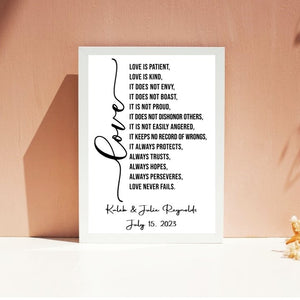 love
LOVE IS PATIENT,
LOVE IS KIND,
IT DOES NOT ENVY,
IT DOES NOT BOAST,
IT IS NOT PROUD,
IT DOES NOT DISHONOR OTHERS,
IT IS NOT EASILY ANGERED,
IT KEEPS NO RECORD OF WRONGS,
IT ALWAYS PROTECTS,
ALWAYS TRUSTS,
ALWAYS HOPES,
ALWAYS PERSEVERES,
LOVE NEVER FAILS.
Kaleb & Julie Reynolds
July 15, 2023